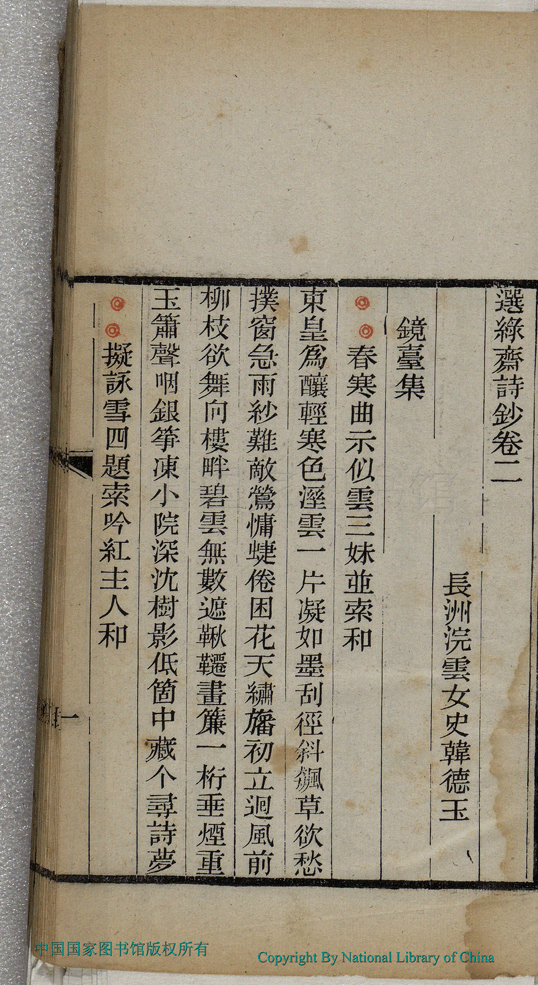 選綠齋詩鈔卷二
長洲浣雲女史韓德玉
鏡臺集
春寒曲示似雲三妹並索和
東皇爲釀輕寒色溼雲一片凝如墨刮徑斜颸草欲愁
撲窗急雨紗難敵鶯慵蜨倦困花天繡旛初立迴風前
柳枝欲舞向樓畔碧雲無數遮鞦韆畫簾一桁垂煙重
玉簫聲咽銀箏凍小院深沈樹影低箇中藏个尋詩夢
擬詠雪四題索吟紅主人和
一
中国国家图书馆版权所有
Copyright By National Library of China